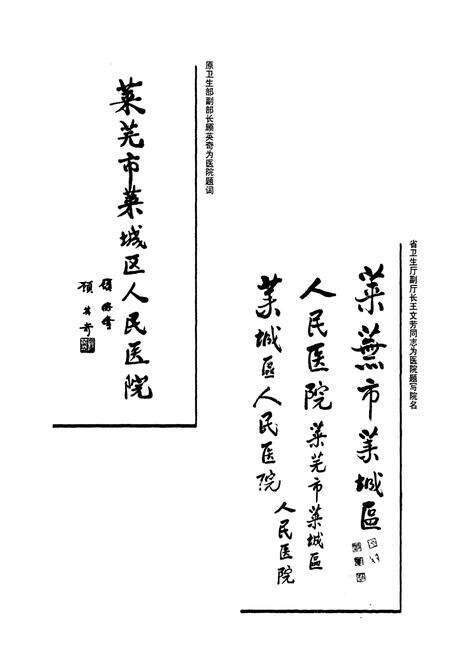 原卫生部副部长顾英奇为医院题词
莱芜市莱城区人民医院
顾英奇
省卫生厅副厅长王文芳同志为医院题写院名
莱蕪市莱城區
人民医院
莱芜市莱城區
莱城區人民医院
人民医院